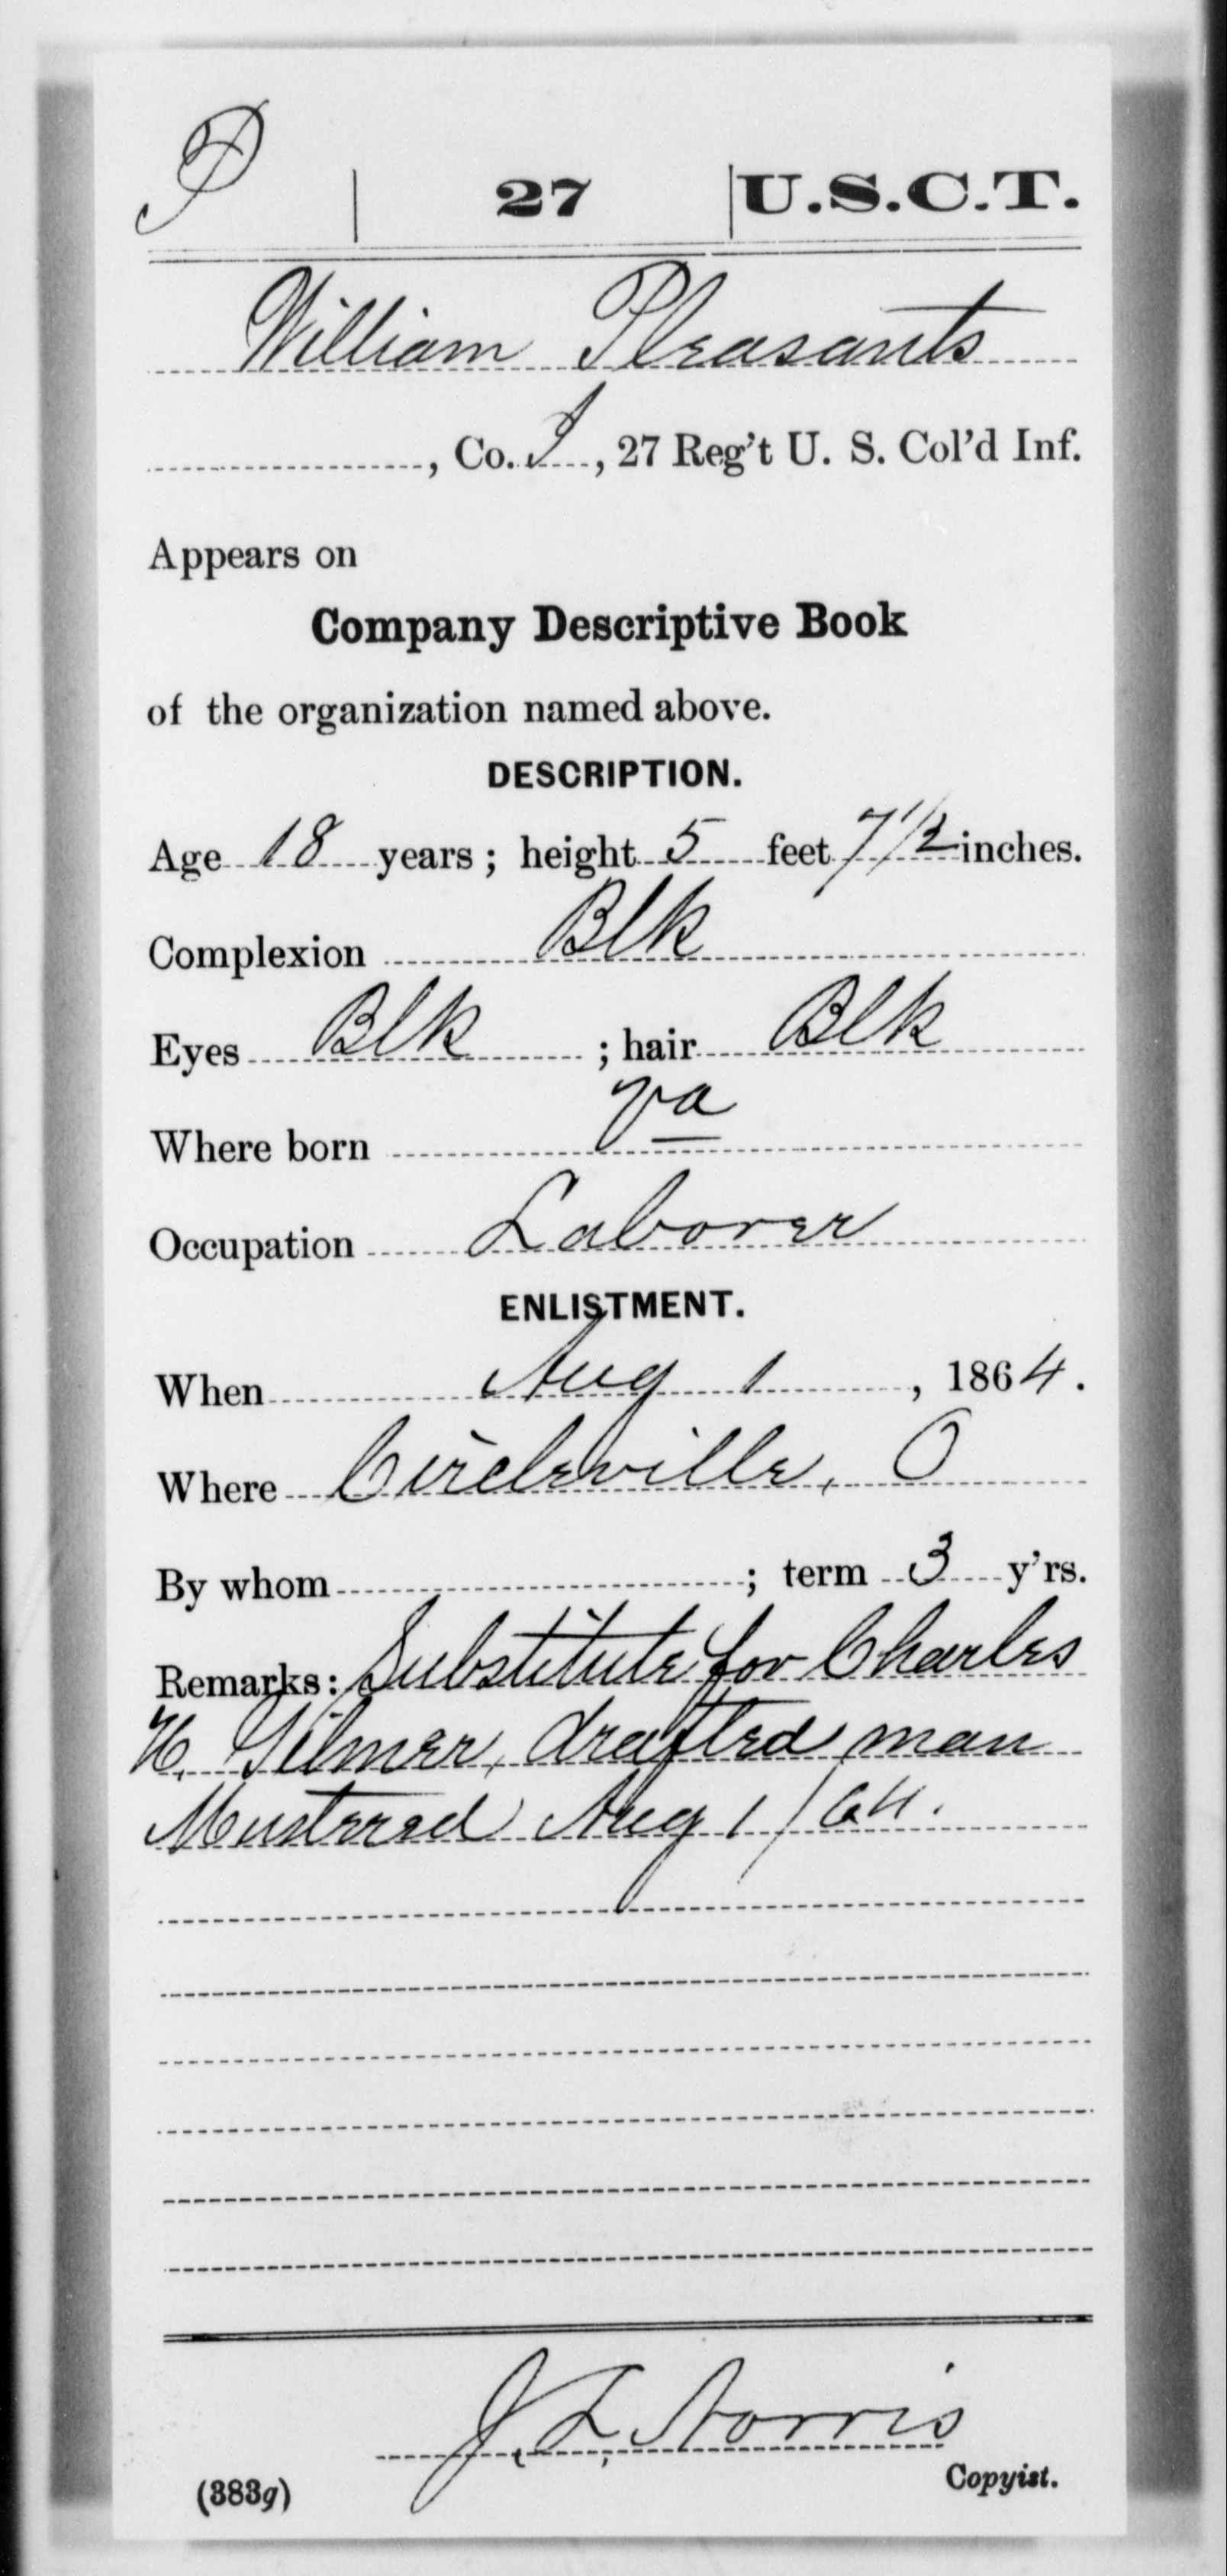 P | 27 | U.S.C.T.
William Pleasants
, Co. I, 27 Reg't U. S. Col'd Inf.
Appears on
Company Descriptive Book
of the organization named above.
DESCRIPTION.
Age 18 years; height 5 feet 7 1/2 inches.
Complexion Blk
Eyes Blk ; hair Blk
Where born Va
Occupation Laborer
ENLISTMENT.
When Aug 1, 1864.
Where Circleville, O
By whom ; term 3 y'rs.
Remarks: Substitute for Charles
H. Gilmer, drafted man
Mustered Aug 1/64.
J. L. Norris
Copyist.
(383g)